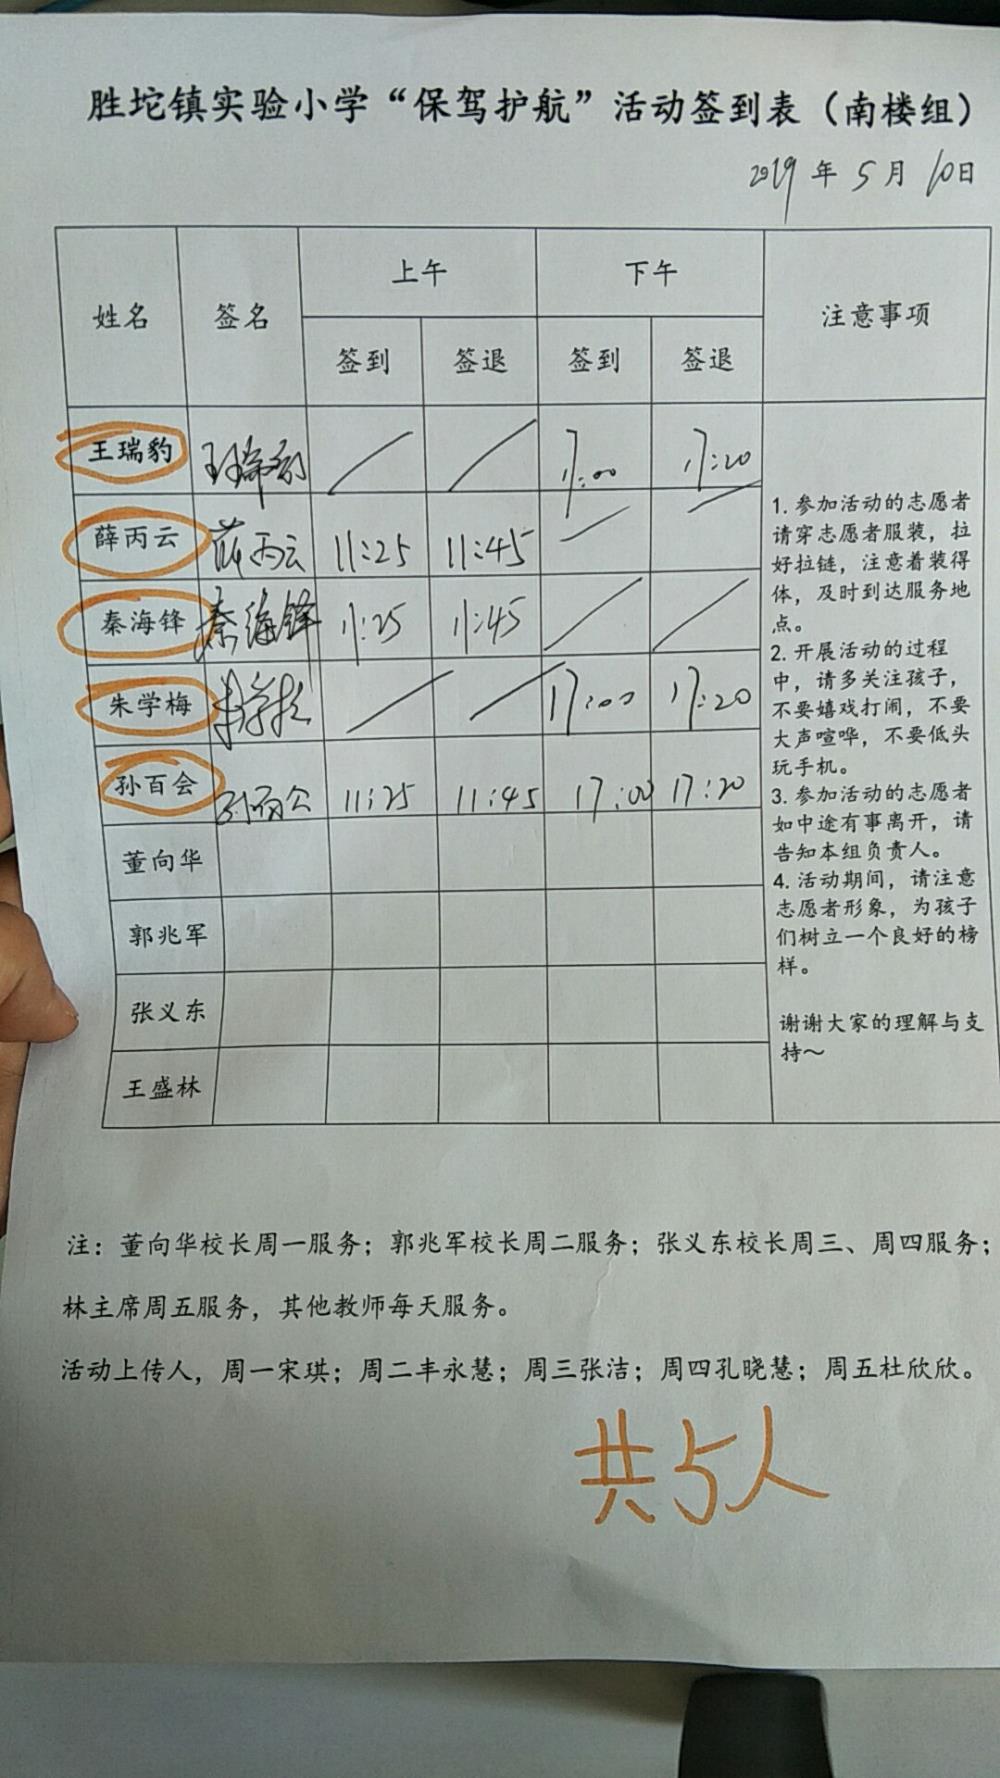 胜坨镇实验小学“保驾护航”活动签到表（南楼组）
2019年5月10日
姓名 签名 上午 下午 注意事项
签到 签退 签到 签退
王瑞豹 王瑞豹 17:00 17:20
薛丙云 薛丙云 11:25 11:45
秦海锋 秦海锋 11:25 11:45
朱学梅 朱学梅 17:00 17:20
孙百会 孙百会 11:25 11:45 17:00 17:20
董向华
郭兆军
张义东
王盛林
1. 参加活动的志愿者
请穿志愿者服装，拉
好拉链，注意着装得
体，及时到达服务地
点。
2. 开展活动的过程
中，请多关注孩子，
不要嬉戏打闹，不要
大声喧哗，不要低头
玩手机。
3. 参加活动的志愿者
如中途有事离开，请
告知本组负责人。
4. 活动期间，请注意
志愿者形象，为孩子
们树立一个良好的榜
样。
谢谢大家的理解与支
持～
注：董向华校长周一服务；郭兆军校长周二服务；张义东校长周三、周四服务；
林主席周五服务，其他教师每天服务。
活动上传人，周一宋琪；周二丰永慧；周三张洁；周四孔晓慧；周五杜欣欣。
共5人